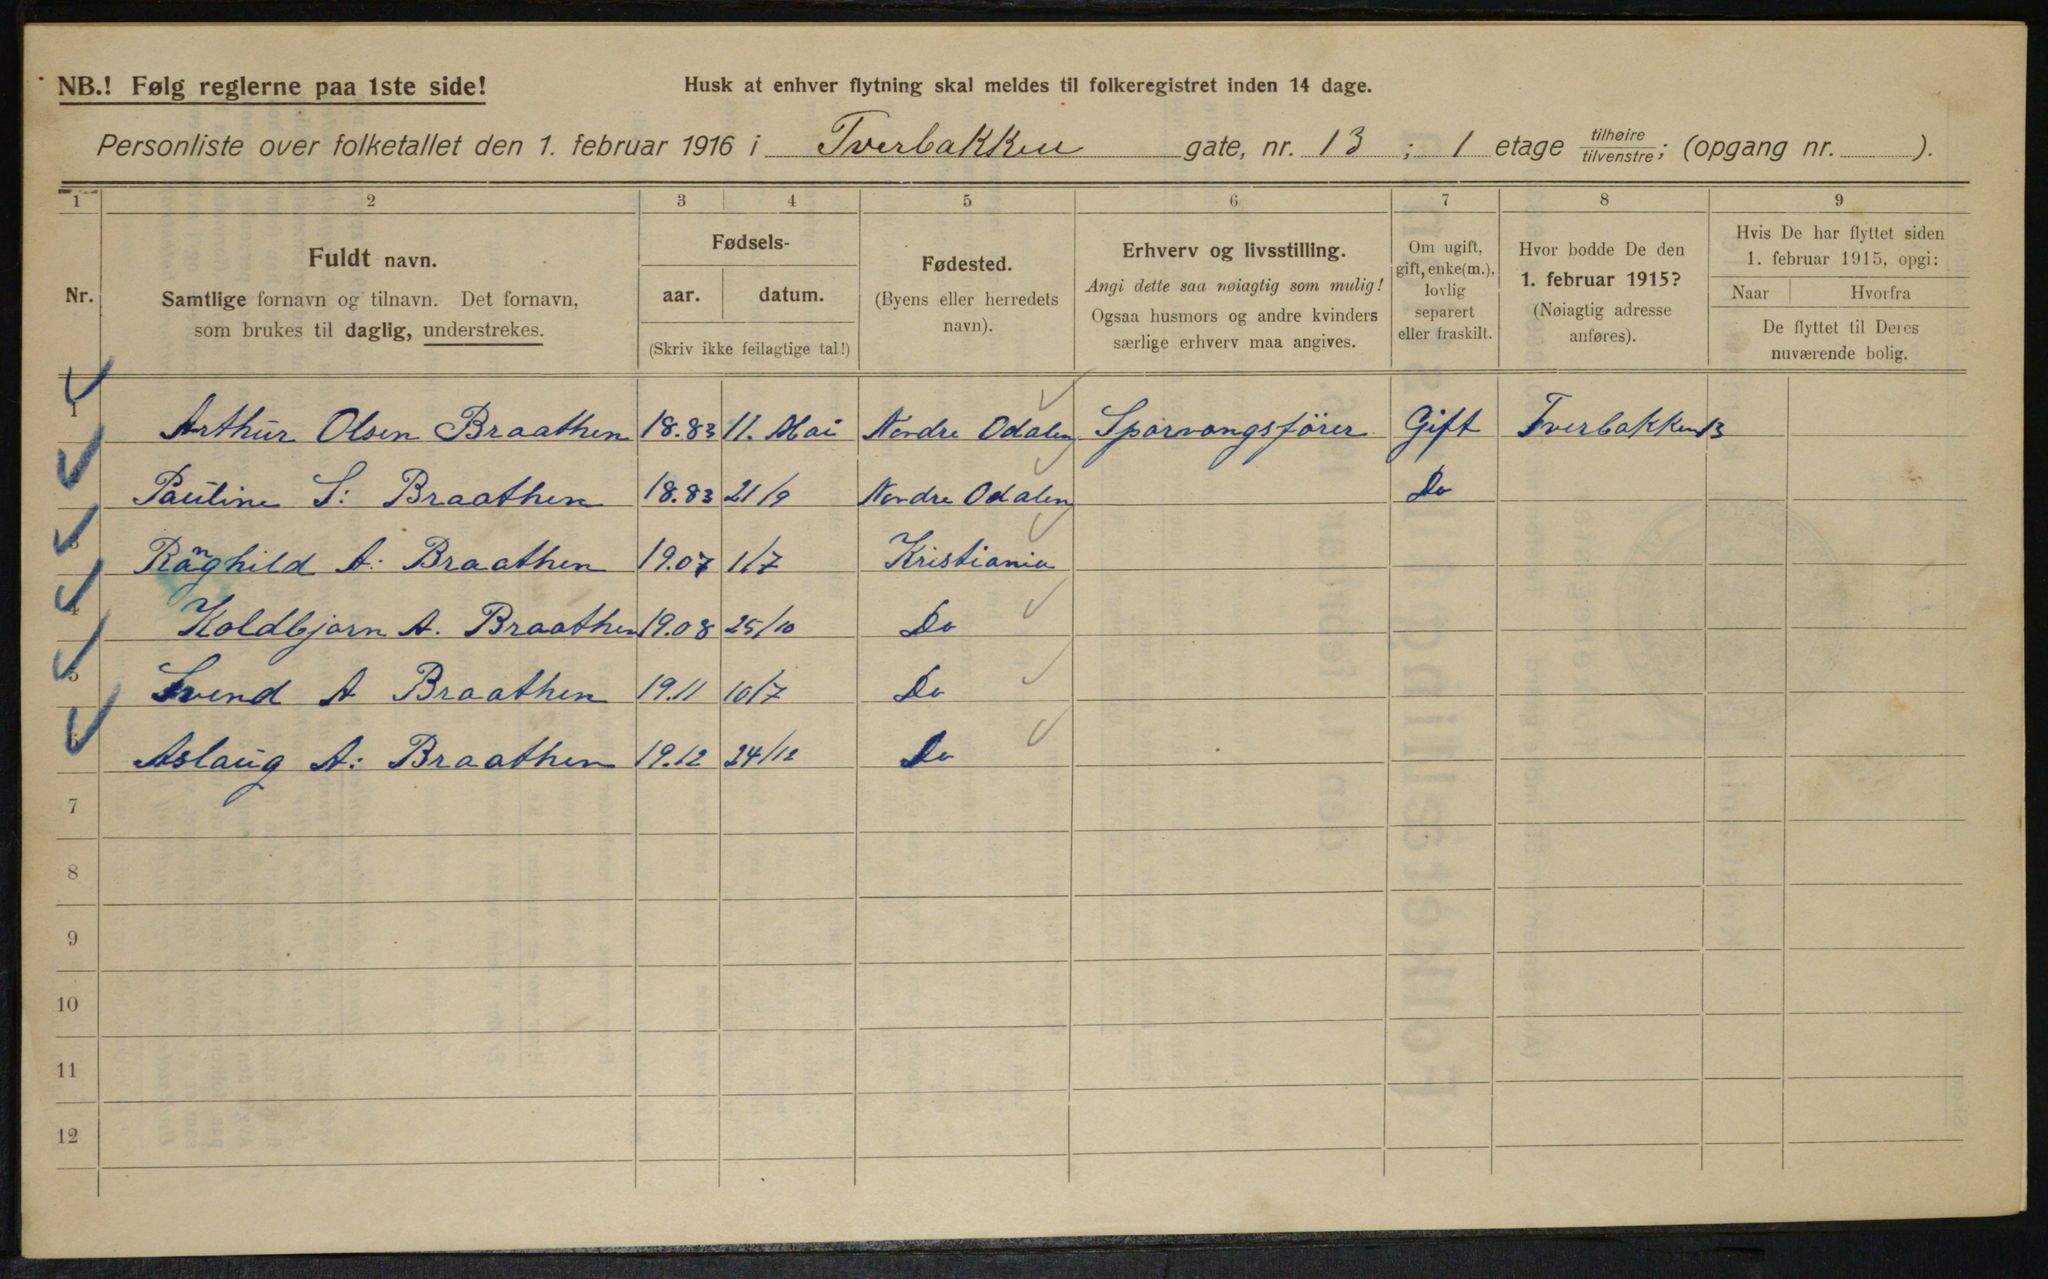 NB.! Følg reglerne paa 1ste side!
Husk at enhver flytning skal meldes til folkeregistret inden 14 dage.
Personliste over folketallet den 1. februar 1916 i Tverbakken gate, nr. 13 ; 1 etage tilhøire/tilvenstre; (opgang nr. ).
1 2 3 4 5 6 7 8 9
Nr.
Fuldt navn.
Samtlige fornavn og tilnavn. Det fornavn,
som brukes til daglig, understrekes.
Fødsels-
aar. datum.
(Skriv ikke feilagtige tal!)
Fødested.
(Byens eller herredets
navn).
Erhverv og livsstilling.
Angi dette saa nøiagtig som mulig!
Ogsaa husmors og andre kvinders
særlige erhverv maa angives.
Om ugift,
gift, enke(m.),
lovlig
separert
eller fraskilt.
Hvor bodde De den
1. februar 1915?
(Nøiagtig adresse
anføres).
Hvis De har flyttet siden
1. februar 1915, opgi:
Naar Hvorfra
De flyttet til Deres
nuværende bolig.
1 Arthur Olsen Braathen 18.83 11. Mai Nordre Odalen Sporvongsfører Gift Tverbakken 13
Pauline S: Braathen 18.83 21/9 Nordre Odalen Do
3 Ranghild A: Braathen 19.07 1/7 Kristiania
4 Koldbjørn A. Braathen 19.08 25/10 Do
5 Svend A Braathen 19.11 10/7 Do
6 Aslaug A: Braathen 19.12 24/12 Do
7
8
9
10
11
12